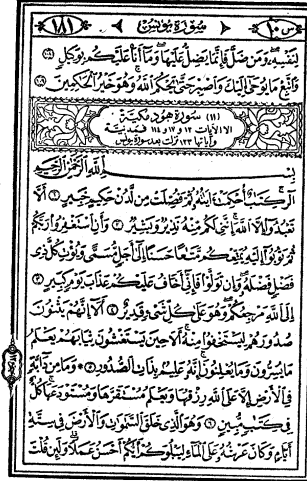 س ١٠ سُورَةُ يُونُسَ ١٨١
لِنَفْسِهِۦ وَمَن ضَلَّ فَإِنَّمَا يَضِلُّ عَلَيْهَا وَمَآ أَنَا۠ عَلَيْكُم بِوَكِيلٍ ١٠٨
وَٱتَّبِعْ مَا يُوحَىٰٓ إِلَيْكَ وَٱصْبِرْ حَتَّىٰ يَحْكُمَ ٱللَّهُ وَهُوَ خَيْرُ ٱلْحَٰكِمِينَ ١٠٩
(١١) سورة هود مكية
الا الآيات ١٢ و ١٧ و ١١٤ فمدنية
وآياتها ١٢٣ نزلت بعد سورة يونس
بِسْمِ ٱللَّهِ ٱلرَّحْمَٰنِ ٱلرَّحِيمِ
الٓر كِتَٰبٌ أُحْكِمَتْ ءَايَٰتُهُۥ ثُمَّ فُصِّلَتْ مِن لَّدُنْ حَكِيمٍ خَبِيرٍ ١ أَلَّا
تَعْبُدُوٓا۟ إِلَّا ٱللَّهَ إِنَّنِى لَكُم مِّنْهُ نَذِيرٌ وَبَشِيرٌ ٢ وَأَنِ ٱسْتَغْفِرُوا۟ رَبَّكُمْ
ثُمَّ تُوبُوٓا۟ إِلَيْهِ يُمَتِّعْكُم مَّتَٰعًا حَسَنًا إِلَىٰٓ أَجَلٍ مُّسَمًّى وَيُؤْتِ كُلَّ ذِى
فَضْلٍ فَضْلَهُۥ وَإِن تَوَلَّوْا۟ فَإِنِّىٓ أَخَافُ عَلَيْكُمْ عَذَابَ يَوْمٍ كَبِيرٍ ٣
إِلَى ٱللَّهِ مَرْجِعُكُمْ وَهُوَ عَلَىٰ كُلِّ شَىْءٍ قَدِيرٌ ٤ أَلَآ إِنَّهُمْ يَثْنُونَ
صُدُورَهُمْ لِيَسْتَخْفُوا۟ مِنْهُ أَلَا حِينَ يَسْتَغْشُونَ ثِيَابَهُمْ يَعْلَمُ
مَا يُسِرُّونَ وَمَا يُعْلِنُونَ إِنَّهُۥ عَلِيمٌۢ بِذَاتِ ٱلصُّدُورِ ٥ وَمَا مِن دَآبَّةٍ
فِى ٱلْأَرْضِ إِلَّا عَلَى ٱللَّهِ رِزْقُهَا وَيَعْلَمُ مُسْتَقَرَّهَا وَمُسْتَوْدَعَهَا كُلٌّ
فِى كِتَٰبٍ مُّبِينٍ ٦ وَهُوَ ٱلَّذِى خَلَقَ ٱلسَّمَٰوَٰتِ وَٱلْأَرْضَ فِى سِتَّةِ
أَيَّامٍ وَكَانَ عَرْشُهُۥ عَلَى ٱلْمَآءِ لِيَبْلُوَكُمْ أَيُّكُمْ أَحْسَنُ عَمَلًا وَلَئِن قُلْتَ